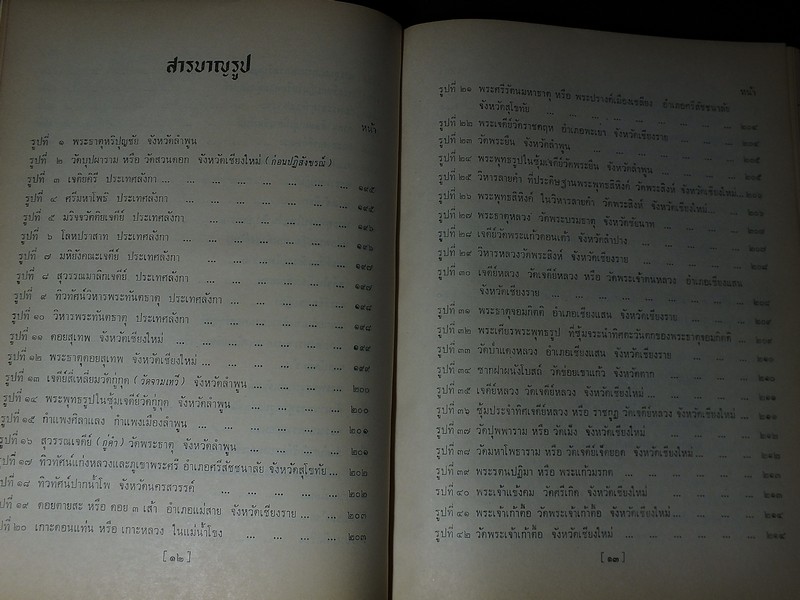 สารบาญรูป
หน้า
รูปที่ ๑ พระธาตุหริปุญชัย จังหวัดลำพูน
รูปที่ ๒ วัดบุปผาราม หรือ วัดสวนดอก จังหวัดเชียงใหม่ (ก่อนปฏิสังขรณ์)
รูปที่ ๓ เจติยคีรี ประเทศลังกา ... ... ... ... ... ๑๙๕
รูปที่ ๔ ศรีมหาโพธิ ประเทศลังกา ... ... ... ... ... ๑๙๕
รูปที่ ๕ มริจจวัตติยเจดีย์ ประเทศลังกา ... ... ... ... ๑๙๖
รูปที่ ๖ โลหปราสาท ประเทศลังกา ... ... ... ... ... ๑๙๖
รูปที่ ๗ มหิยังคณะเจดีย์ ประเทศลังกา ... ... ... ... ๑๙๗
รูปที่ ๘ สุวรรณมาลิกเจดีย์ ประเทศลังกา ... ... ... ... ๑๙๗
รูปที่ ๙ ทิวทัศน์วิหารพระทันตธาตุ ประเทศลังกา ... ... ... ... ๑๙๘
รูปที่ ๑๐ วิหารพระทันตธาตุ ประเทศลังกา ... ... ... ... ๑๙๘
รูปที่ ๑๑ ดอยสุเทพ จังหวัดเชียงใหม่ ... ... ... ... ๑๙๙
รูปที่ ๑๒ พระธาตุดอยสุเทพ จังหวัดเชียงใหม่ ... ... ... ... ๑๙๙
รูปที่ ๑๓ เจดีย์สี่เหลี่ยมวัดกู่กุด (วัดจามเทวี) จังหวัดลำพูน ... ... ๒๐๐
รูปที่ ๑๔ พระพุทธรูปในซุ้มเจดีย์วัดกู่กุด จังหวัดลำพูน ... ... ... ๒๐๐
รูปที่ ๑๕ กำแพงศิลาแลง กำแพงเมืองลำพูน ... ... ... ... ๒๐๑
รูปที่ ๑๖ สุวรรณเจดีย์ (กู่คำ) วัดพระธาตุ จังหวัดลำพูน ... ... ... ๒๐๑
รูปที่ ๑๗ ทิวทัศน์แก่งหลวงและภูเขาพระศรี อำเภอศรีสัชชนาลัย จังหวัดสุโขทัย ... ๒๐๒
รูปที่ ๑๘ ทิวทัศน์ปากน้ำโพ จังหวัดนครสวรรค์ ... ... ... ... ๒๐๒
รูปที่ ๑๙ ดอยตายสะ หรือ ดอย ๓ เส้า อำเภอแม่สาย จังหวัดเชียงราย ... ... ๒๐๓
รูปที่ ๒๐ เกาะดอนแท่น หรือ เกาะหลวง ในแม่น้ำโขง ... ... ... ๒๐๓
[ ๑๒ ]
หน้า
รูปที่ ๒๑ พระศรีรัตนมหาธาตุ หรือ พระปรางค์เมืองเชลียง อำเภอศรีสัชชนาลัย
จังหวัดสุโขทัย ... ... ... ... ... ... ๒๐๔
รูปที่ ๒๒ พระเจดีย์วัดราชคฤห อำเภอพะเยา จังหวัดเชียงราย ... ...
รูปที่ ๒๓ วัดพระยืน จังหวัดลำพูน ... ... ... ... ๒๐๕
รูปที่ ๒๔ พระพุทธรูปในซุ้มเจดีย์วัดพระยืน จังหวัดลำพูน ... ... ๒๐๕
รูปที่ ๒๕ วิหารลายคำ ที่ประดิษฐานพระพุทธสิหิงค์ วัดพระสิงห์ จังหวัดเชียงใหม่ ...
รูปที่ ๒๖ พระพุทธสิหิงค์ ในวิหารลายคำ วัดพระสิงห์ จังหวัดเชียงใหม่ ...
รูปที่ ๒๗ พระธาตุหลวง วัดพระบรมธาตุ จังหวัดชัยนาท ... ...
รูปที่ ๒๘ เจดีย์วัดพระแก้วดอนเต้า จังหวัดลำปาง ... ... ...
รูปที่ ๒๙ วิหารหลวงวัดพระสิงห์ จังหวัดเชียงราย ... ... ...
รูปที่ ๓๐ เจดีย์หลวง วัดเจดีย์หลวง หรือ วัดพระเจ้าตนหลวง อำเภอเชียงแสน
จังหวัดเชียงราย ... ... ... ... ... ...
รูปที่ ๓๑ พระธาตุจอมกิตติ อำเภอเชียงแสน จังหวัดเชียงราย ... ...
รูปที่ ๓๒ พระเศียรพระพุทธรูป ที่ซุ้มจระนำทิศตะวันตกของพระธาตุจอมกิตติ ...
รูปที่ ๓๓ วัดป่าแดงหลวง อำเภอเชียงแสน จังหวัดเชียงราย ... ... ๒๑๐
รูปที่ ๓๔ ซากฝาผนังโบสถ์ วัดข่อยเขาแก้ว จังหวัดตาก ... ... ๒๑๐
รูปที่ ๓๕ เจดีย์หลวง วัดเจดีย์หลวง จังหวัดเชียงใหม่ ... ... ... ๒๑๑
รูปที่ ๓๖ ซุ้มประจำทิศเจดีย์หลวง หรือ ราชกูฏ วัดเจดีย์หลวง จังหวัดเชียงใหม่ ... ๒๑๑
รูปที่ ๓๗ วัดปุพพาราม หรือ วัดเม็ง จังหวัดเชียงใหม่ ... ... ... ๒๑๒
รูปที่ ๓๘ วัดมหาโพธาราม หรือ วัดเจดีย์เจ็ดยอด จังหวัดเชียงใหม่ ... ... ๒๑๒
รูปที่ ๓๙ พระรตนปฏิมา หรือ พระแก้วมรกต ... ... ... ๒๑๓
รูปที่ ๔๐ พระเจ้าแข้งคม วัดศรีเกิด จังหวัดเชียงใหม่ ... ... ... ๒๑๓
รูปที่ ๔๑ พระเจ้าเก้าตื้อ วัดพระเจ้าเก้าตื้อ จังหวัดเชียงใหม่ ... ... ... ๒๑๔
รูปที่ ๔๒ วัดพระเจ้าเก้าตื้อ จังหวัดเชียงใหม่ ... ... ... ... ๒๑๔
[ ๑๓ ]